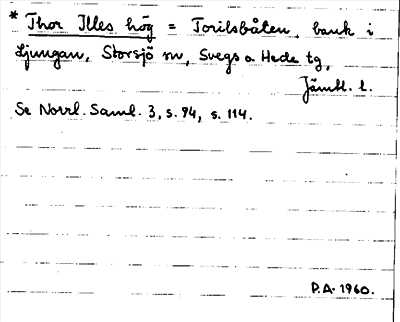 * Thor Illes hög = Torilsbåten, bank i
Ljungan, Storsjö sn, Svegs o Hede tg,
Jämtl. l.
Se Norrl. Saml. 3, s. 94, s. 114.
P.A. 1960.